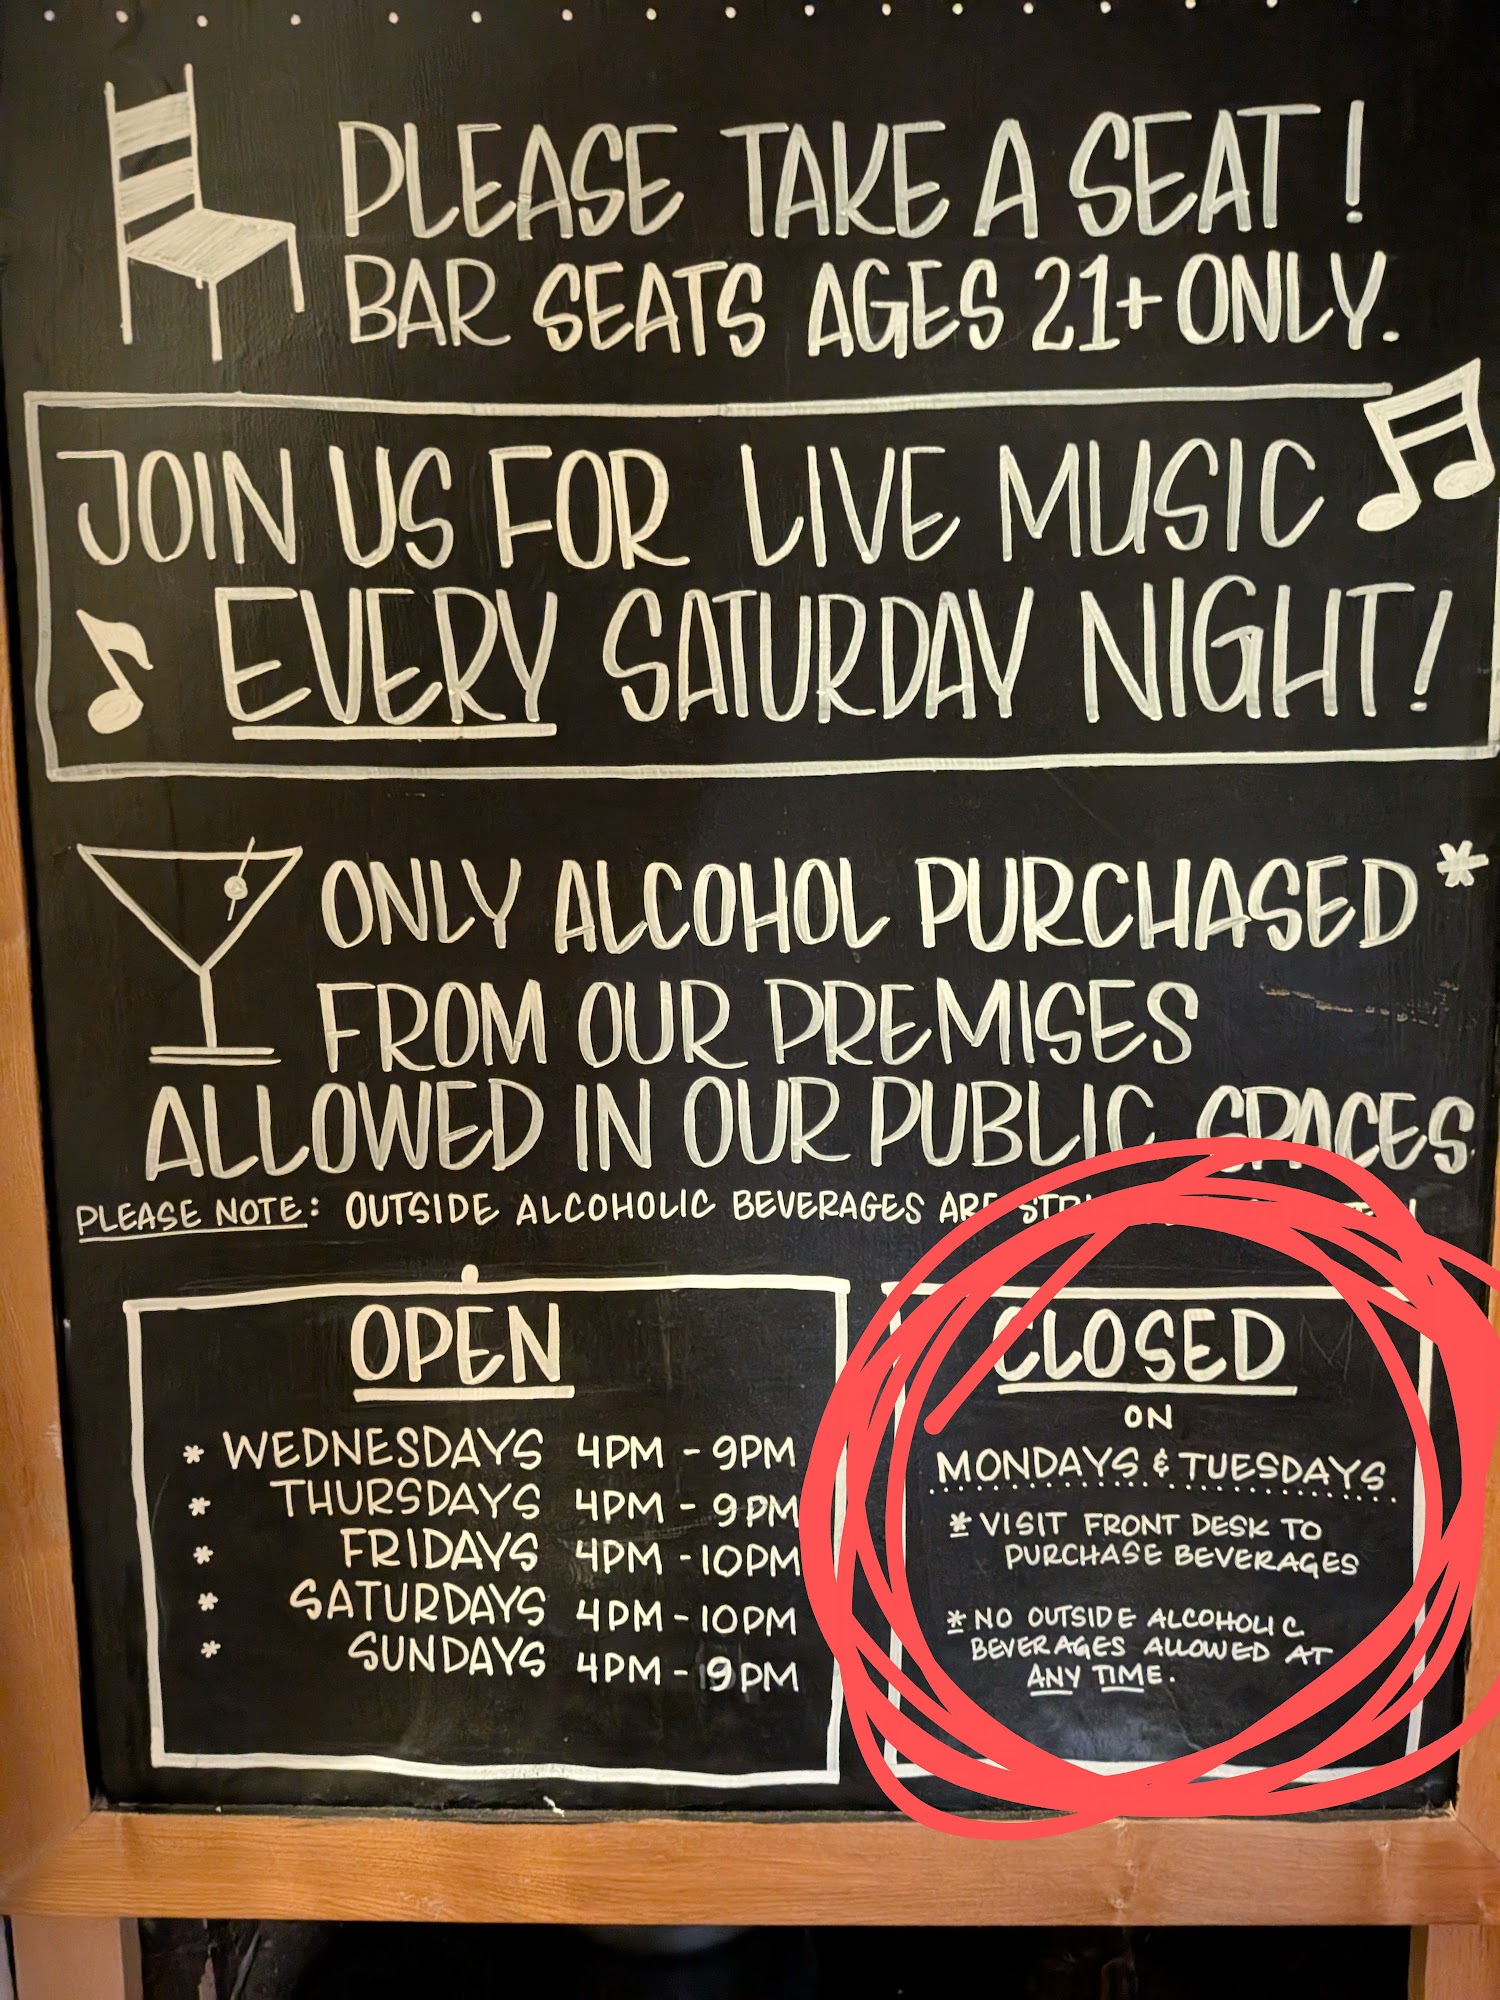 PLEASE TAKE A SEAT!
BAR SEATS AGES 21+ ONLY.
JOIN US FOR LIVE MUSIC
EVERY SATURDAY NIGHT!
ONLY ALCOHOL PURCHASED*
FROM OUR PREMISES
ALLOWED IN OUR PUBLIC SPACES
PLEASE NOTE: OUTSIDE ALCOHOLIC BEVERAGES ARE
OPEN
* WEDNESDAYS 4PM - 9PM
* THURSDAYS 4PM - 9PM
* FRIDAYS 4PM - 10PM
* SATURDAYS 4PM - 10PM
* SUNDAYS 4PM - 9PM
CLOSED
ON
MONDAYS & TUESDAYS
* VISIT FRONT DESK TO
PURCHASE BEVERAGES
* NO OUTSIDE ALCOHOLIC
BEVERAGES ALLOWED AT
ANY TIME.